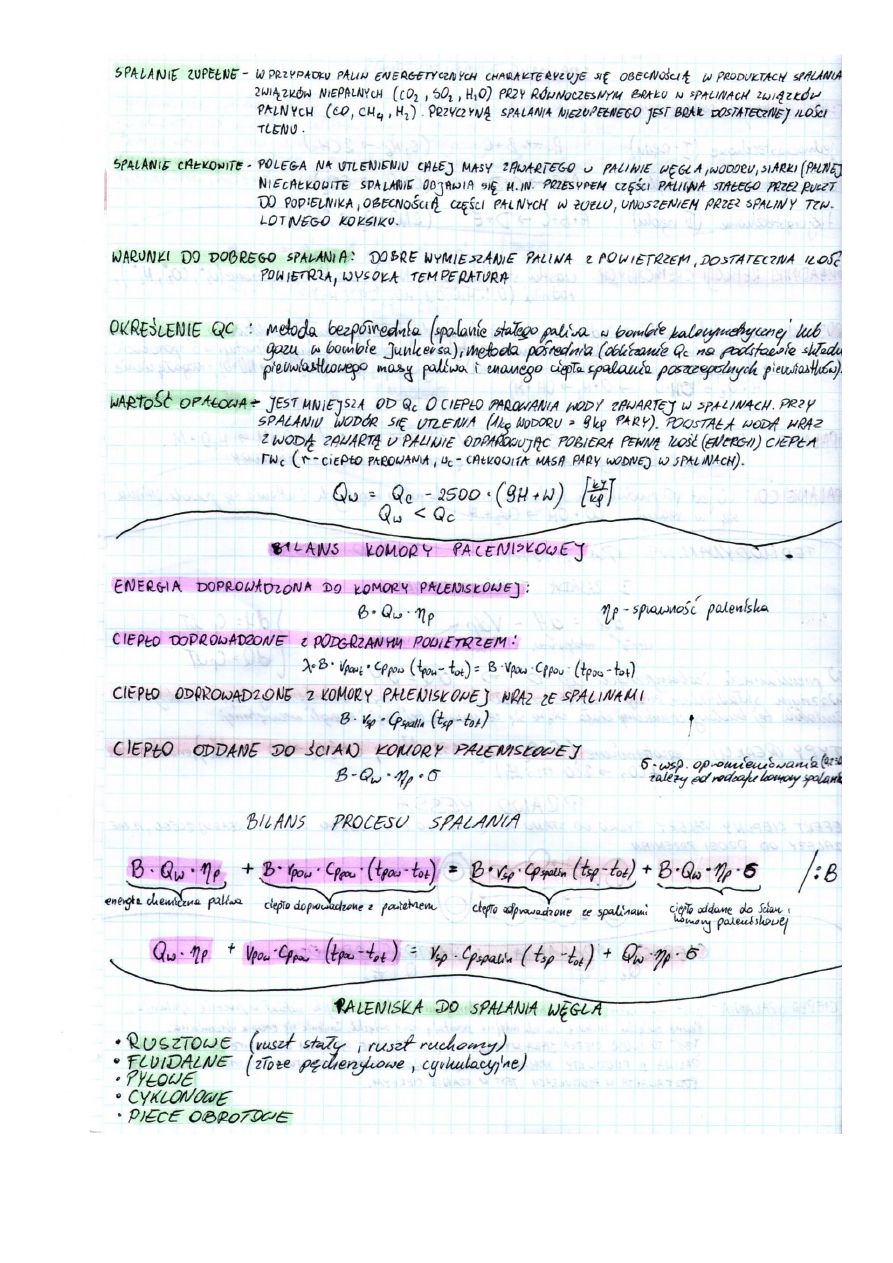 SPALANIE ZUPEŁNE - W PRZYPADKU PALIW ENERGETYCZNYCH CHARAKTERYZUJE SIĘ OBECNOŚCIĄ W PRODUKTACH SPALANIA
ZWIĄZKÓW NIEPALNYCH (CO2, SO2, H2O) PRZY RÓWNOCZESNYM BRAKU W SPALINACH ZWIĄZKÓW
PALNYCH (CO, CH4, H2). PRZYCZYNĄ SPALANIA NIEZUPEŁNEGO JEST BRAK DOSTATECZNEJ ILOŚCI
TLENU.
SPALANIE CAŁKOWITE - POLEGA NA UTLENIENIU CAŁEJ MASY ZAWARTEGO W PALIWIE WĘGLA, WODORU, SIARKI (PALNEJ)
NIECAŁKOWITE SPALANIE OBJAWIA SIĘ M.IN. PRZESYPEM CZĘŚCI PALIWA STAŁEGO PRZEZ RUSZT
DO POPIELNIKA, OBECNOŚCIĄ CZĘŚCI PALNYCH W ŻUŻLU, UNOSZENIEM PRZEZ SPALINY TZW.
LOTNEGO KOKSIKU.
WARUNKI DO DOBREGO SPALANIA: DOBRE WYMIESZANIE PALIWA Z POWIETRZEM, DOSTATECZNA ILOŚĆ
POWIETRZA, WYSOKA TEMPERATURA
OKREŚLENIE QC : metoda bezpośrednia (spalanie stałego paliwa w bombie kalorymetrycznej lub
gazu w bombie Junkersa), metoda pośrednia (obliczanie Qc na podstawie składu
pierwiastkowego masy paliwa i znanego ciepła spalania poszczególnych pierwiastków).
WARTOŚĆ OPAŁOWA - JEST MNIEJSZA OD Qc O CIEPŁO PAROWANIA WODY ZAWARTEJ W SPALINACH. PRZY
SPALANIU WODÓR SIĘ UTLENIA (1kg WODORU = 9kg PARY). POWSTAŁA WODA WRAZ
Z WODĄ ZAWARTĄ W PALIWIE ODPAROWUJĄC POBIERA PEWNĄ ILOŚĆ (ENERGII) CIEPŁA
rWc (r - CIEPŁO PAROWANIA, wc - CAŁKOWITA MASA PARY WODNEJ W SPALINACH).
Qw = Qc - 2500 · (9H + W) [kJ/kg]
Qw < Qc
BILANS KOMORY PALENISKOWEJ
ENERGIA DOPROWADZONA DO KOMORY PALENISKOWEJ:
B · Qw · ηp ηp - sprawność paleniska
CIEPŁO DOPROWADZONE Z PODGRZANYM POWIETRZEM:
λ · B · Vpowt · Cppow (tpow - tot) = B · Vpow · Cppow · (tpow - tot)
CIEPŁO ODPROWADZONE Z KOMORY PALENISKOWEJ WRAZ ZE SPALINAMI
B · Vsp · Cpspalin (tsp - tot)
CIEPŁO ODDANE DO ŚCIAN KOMORY PALENISKOWEJ
B · Qw · ηp · σ
σ - wsp. opromieniowania
zależy od rodzaju komory spalania
BILANS PROCESU SPALANIA
B · Qw · ηp + B · Vpow · Cppow · (tpow - tot) = B · Vsp · Cpspalin (tsp - tot) + B · Qw · ηp · σ /:B
energia chemiczna paliwa ciepło doprowadzone z powietrzem ciepło odprowadzone ze spalinami ciepło oddane do ścian
komory paleniskowej
Qw · ηp + Vpow · Cppow (tpow - tot) = Vsp · Cpspalin (tsp - tot) + Qw · ηp · σ
PALENISKA DO SPALANIA WĘGLA
• RUSZTOWE (ruszt stały, ruszt ruchomy)
• FLUIDALNE (złoże pęcherzykowe, cyrkulacyjne)
• PYŁOWE
• CYKLONOWE
• PIECE OBROTOWE